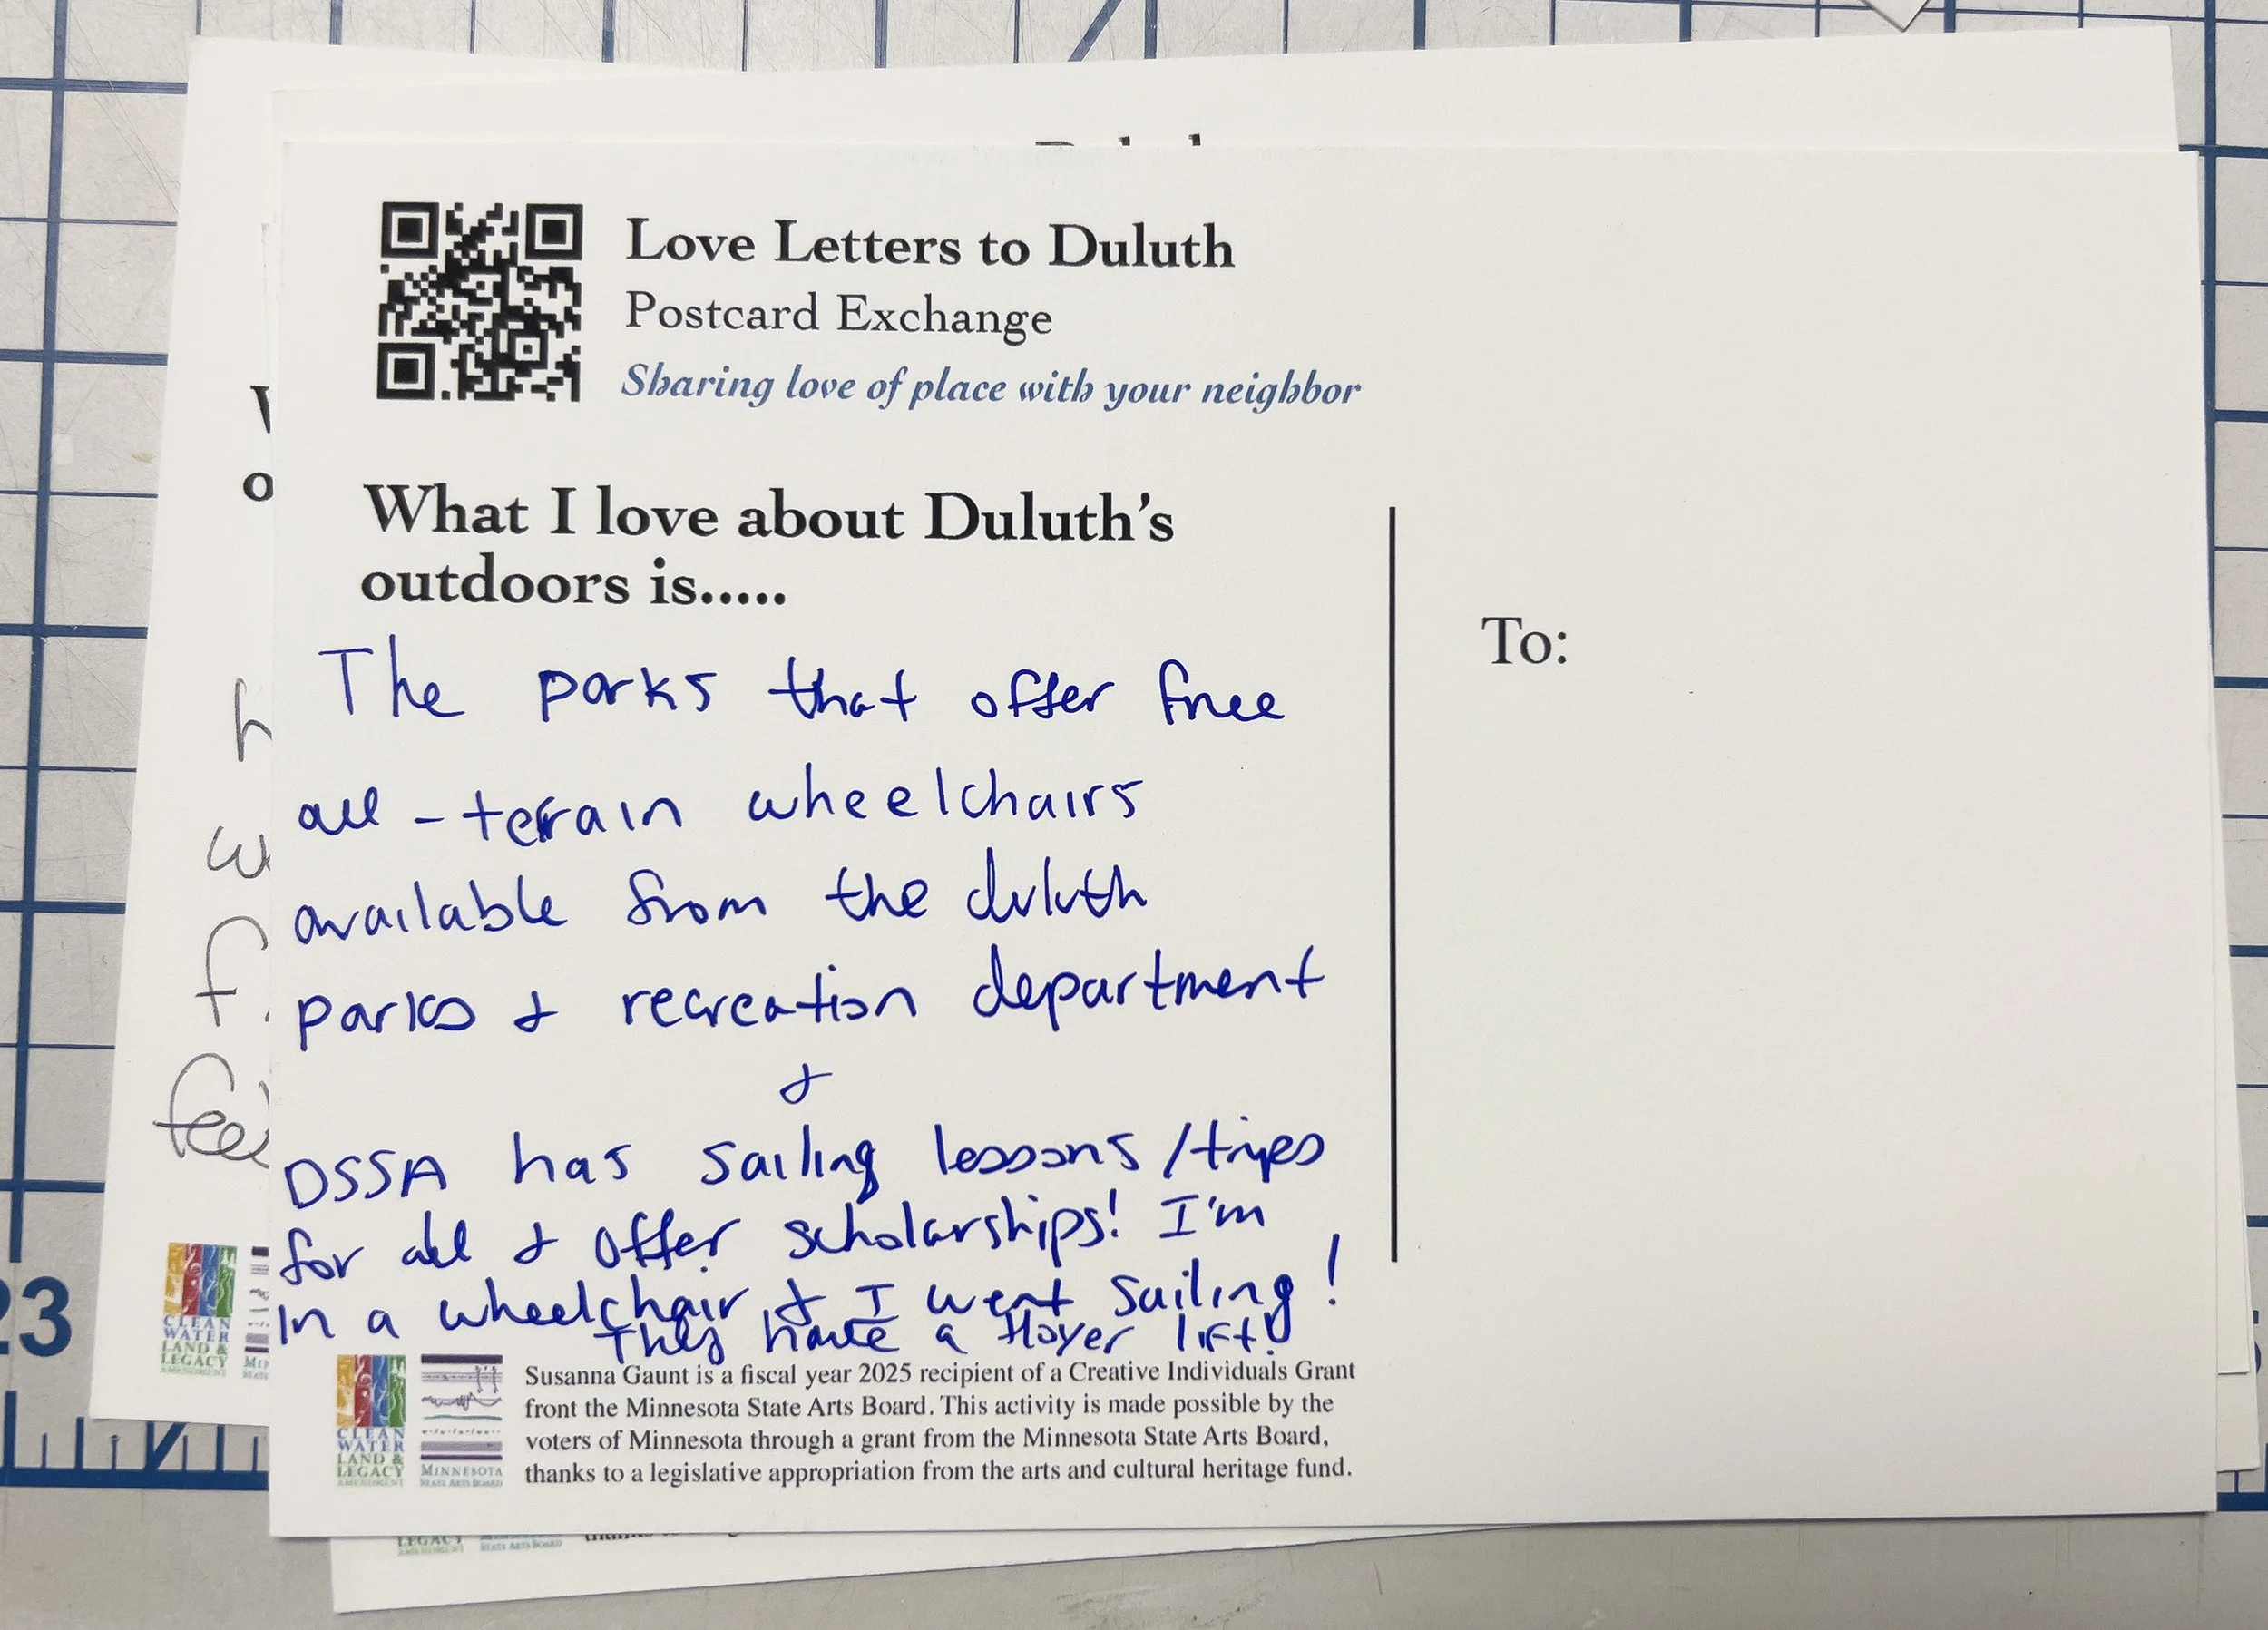 Love Letters to Duluth
Postcard Exchange
Sharing love of place with your neighbor
What I love about Duluth's
outdoors is.....
The parks that offer free
all-terrain wheelchairs
available from the duluth
parks & recreation department
&
DSSA has sailing lessons/trips
for all & offer scholarships! I'm
in a wheelchair & I went sailing!
They have a Hoyer lift!
To:
CLEAN
WATER
LAND &
LEGACY
AMENDMENT
MINNESOTA
STATE ARTS BOARD
Susanna Gaunt is a fiscal year 2025 recipient of a Creative Individuals Grant
front the Minnesota State Arts Board. This activity is made possible by the
voters of Minnesota through a grant from the Minnesota State Arts Board,
thanks to a legislative appropriation from the arts and cultural heritage fund.
CLEAN
WATER
LAND &
LEGACY
AMENDMENT
23
LEGACY
AMENDMENT
STATE ARTS BOARD